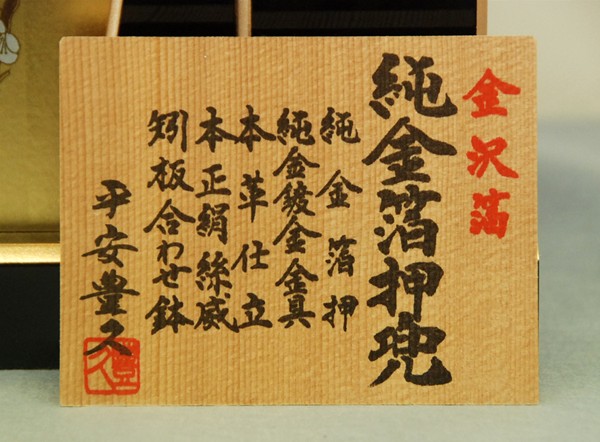 金沢箔
純金箔押兜
純金箔押
純金鍍金金具
本革仕立
本正絹絲威
矧板合わせ鉢
平安豊久
豊久